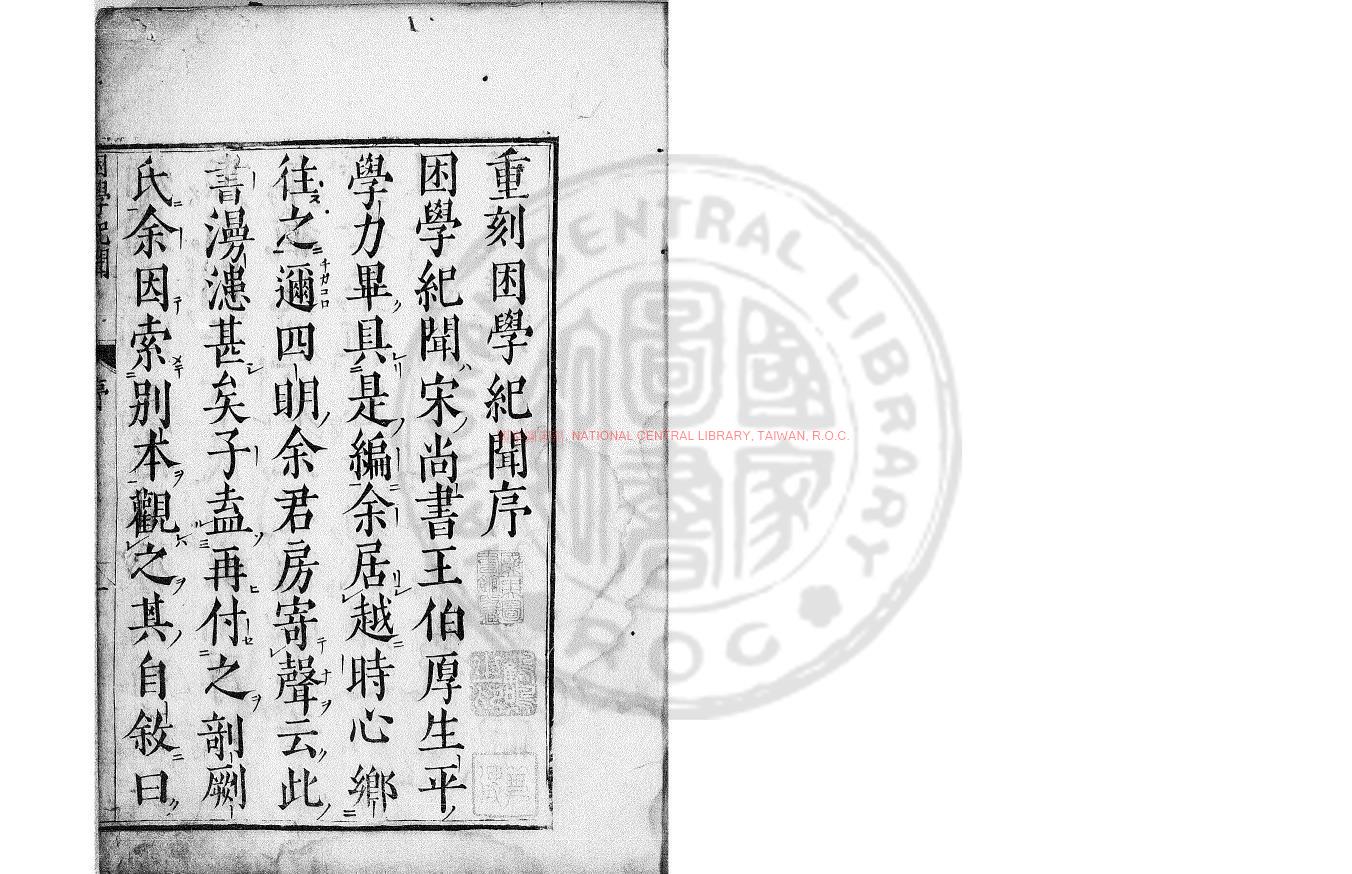 重刻困學紀聞序
困學紀聞宋尚書王伯厚生平
學力畢具是編余居越時心鄉
往之邇四明余君房寄聲云此
書漫漶甚矣子盍再付之剞劂
氏余因索別本觀之其自敘曰
困學紀聞
序
NATIONAL CENTRAL LIBRARY, TAIWAN, R.O.C.